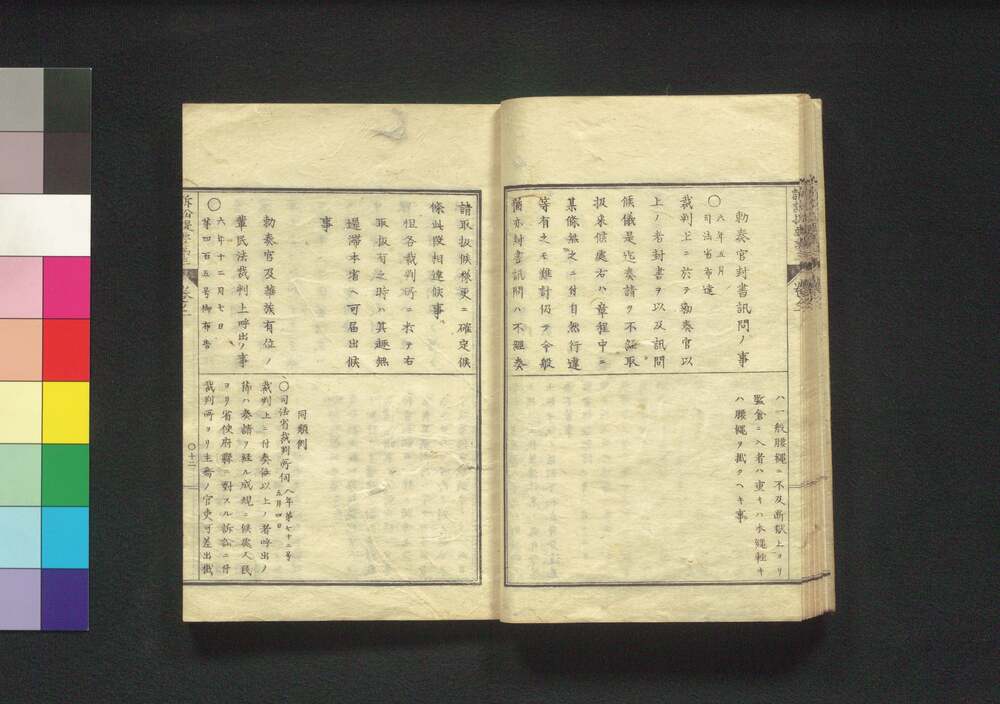 勅奏官封書訊問ノ事
〇六年五月
司法省布達
裁判上ニ於テ勅奏官以
上ノ者封書ヲ以及訊問
候儀是迄奏請ヲ不経取
扱来候處右ハ章程中ニ
某條無之ニ付自然行違
等有之モ難計仍テ令般
猶亦封書訊問ハ不経奏
ハ一般腰縄ニ不及断獄上ヨリ
監倉ニ入者ハ更キハ本縄軽キ
ハ腰縄ヲ掛クヘキ事
請取扱候様更ニ確定候
條此段相達候事
但各裁判所ニ於テ右
取扱有之時ハ其趣無
遅滞本省ヘ可届出候
事
勅奏官及華族有位ノ
輩民法裁判上呼出ノ事
〇六年十二月七日
第四百五号御布告
同類例
〇司法省裁判所伺
八年第七十二号
五月四日
裁判上ニ付奏任以上ノ者呼出ノ
節ハ奏請ヲ経ル成規ニ候處人民
ヨリ省使府縣ニ對スル訴訟ニ付
裁判所ヨリ主務ノ官吏可差出儀
〇十二